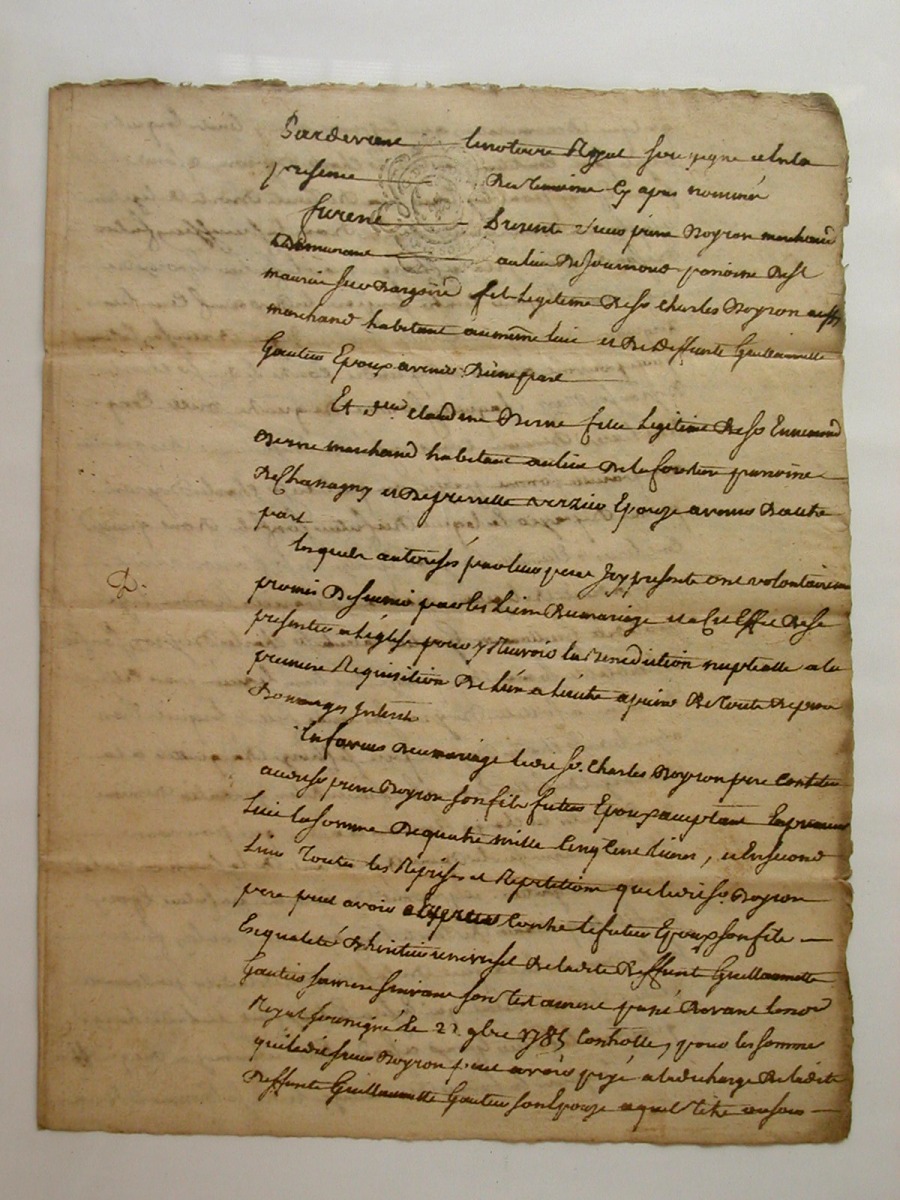 Pardevant le notaire Royal soussigné et en la
presence des temoins cy apres nommés
furent Presents sieur pierre Noyron marchand
Demeurant au lieu de journoud paroisse de St
maurice sur dargoire fils legitime de sr Charles Noyron aussy
marchand habitant au meme lieu et de deffunte Guillaumette
Gautier Epoux avenir d'une part
Et dlle claudine Berne fille legitime de sr Ennemond
Berne marchand habitant au lieu de la paroisse
de Chassagny et de pierrette Epouze avenir d'autre
part
lesquels autorisés par leurs peres icy presents ont volontairement
promis de s'unir par les liens du mariage et a cet Effet de se
presenter a l'église pour y Recevoir la Benediction nuptialle a la
premiere Requisition de l'un a l'autre a peine de toute depens
Domages Interets
En faveur du mariage ledit sr. Charles Noyron pere Constitue
audit sr pierre Noyron son fils futur Epoux acceptant En premier
lieu la somme de quatre mille Cinq Cent livres, et En second
lieu Toutes les Reprises et Repetitions que ledit sr. Noyron
pere peut avoir a Exercer Contre le futur Epoux son fils
En qualité d'heritier universel de ladite deffunte Guillaumette
Gautier sa mere suivant son testament passé devant le no.re
Royal soussigné le 22 9bre 1785 Controllé, pour les sommes
que ledit sieur Noyron peut avoir payé a la decharge de ladite
deffunte Guillaumette Gautier son Epouze a quel titre
D.